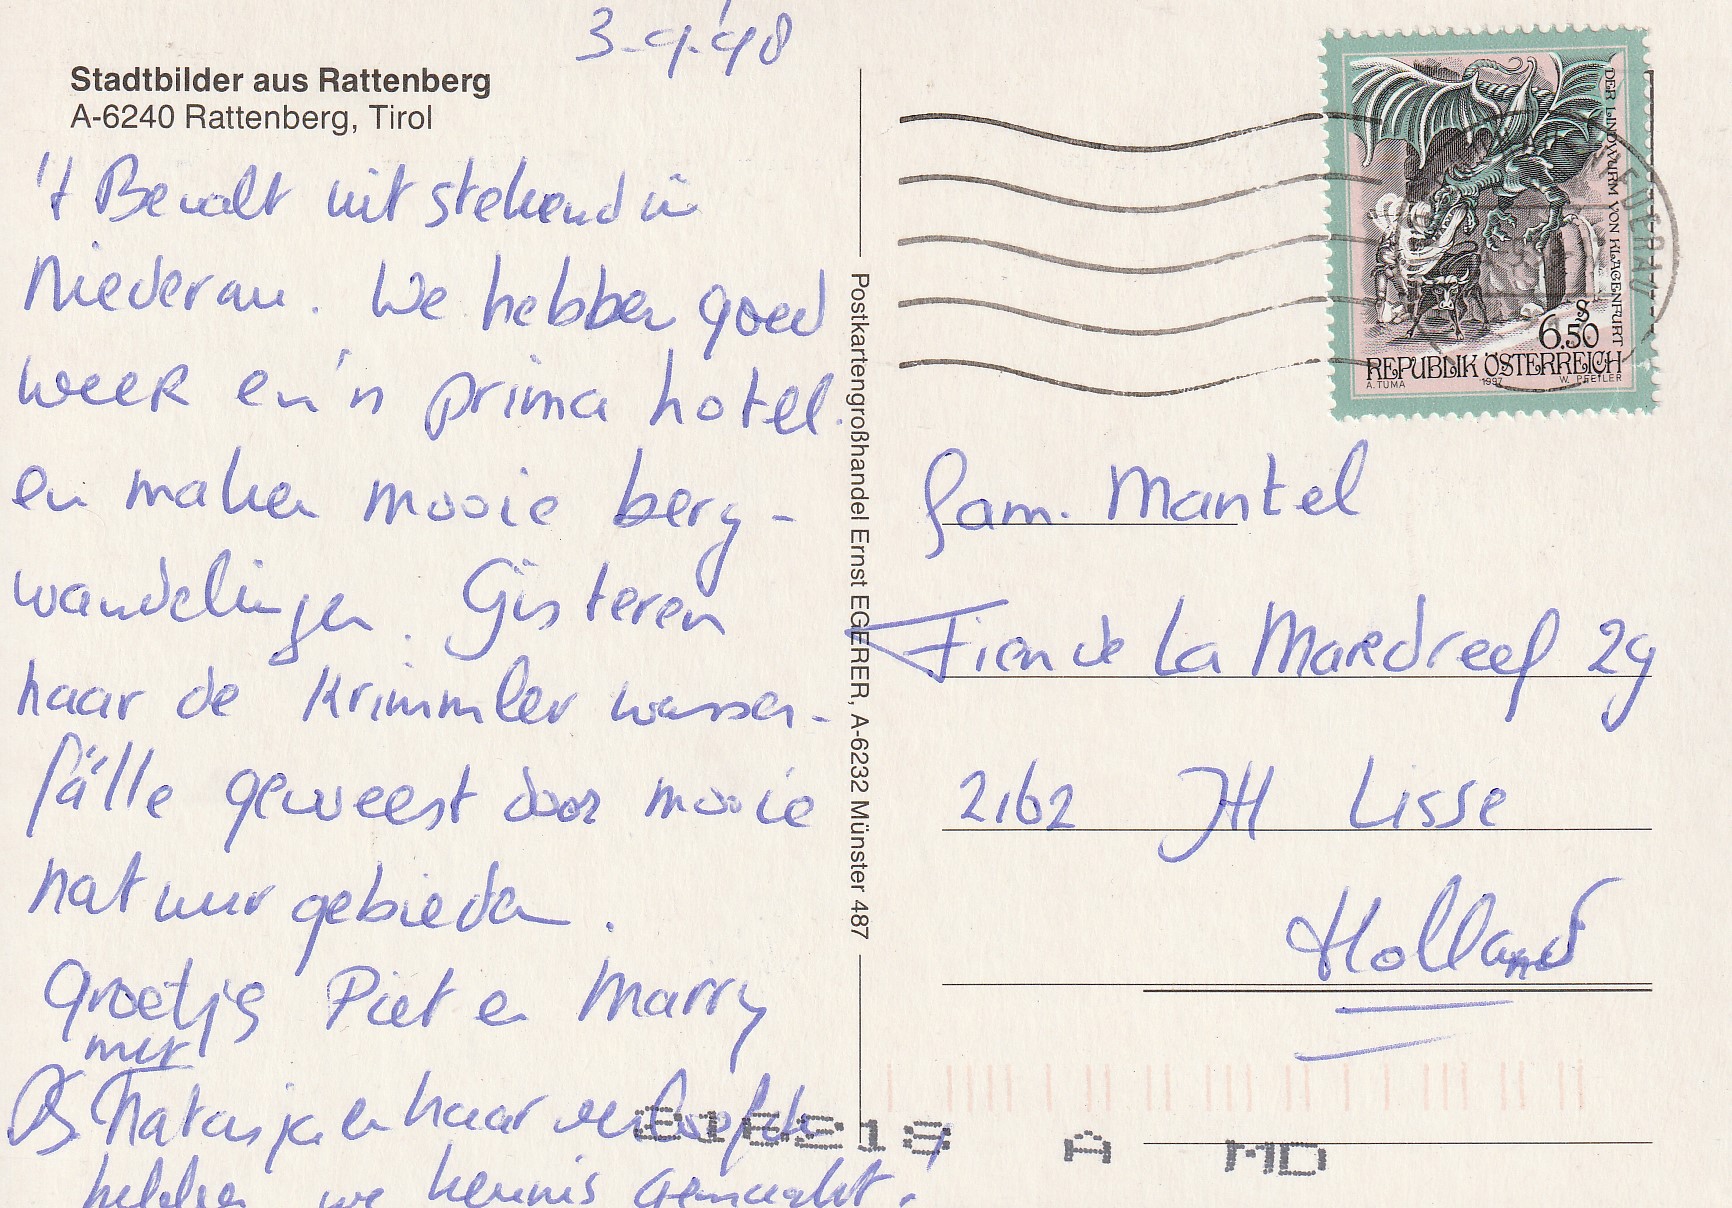 3-9-'98
Stadtbilder aus Rattenberg
A-6240 Rattenberg, Tirol
't Bevalt uitstekend in
Niederau. We hebben goed
weer en 'n prima hotel.
en maken mooie berg-
wandelingen. Gisteren
naar de Krimmler wasser-
fälle geweest door mooie
natuurgebieden.
groetjes Piet en Marry
met
PS Natasja en haar verloofde
hebben we kennis gemaakt.
Postkartengroßhandel Ernst EGERER, A-6232 Münster 487
DER LINDWURM VON KLAGENFURT
S
6.50
REPUBLIK ÖSTERREICH
A. TUMA 1997 W. PFEILER
Fam. Mantel
Fien de La Mardreef 29
2162 JH Lisse
Holland
A MD